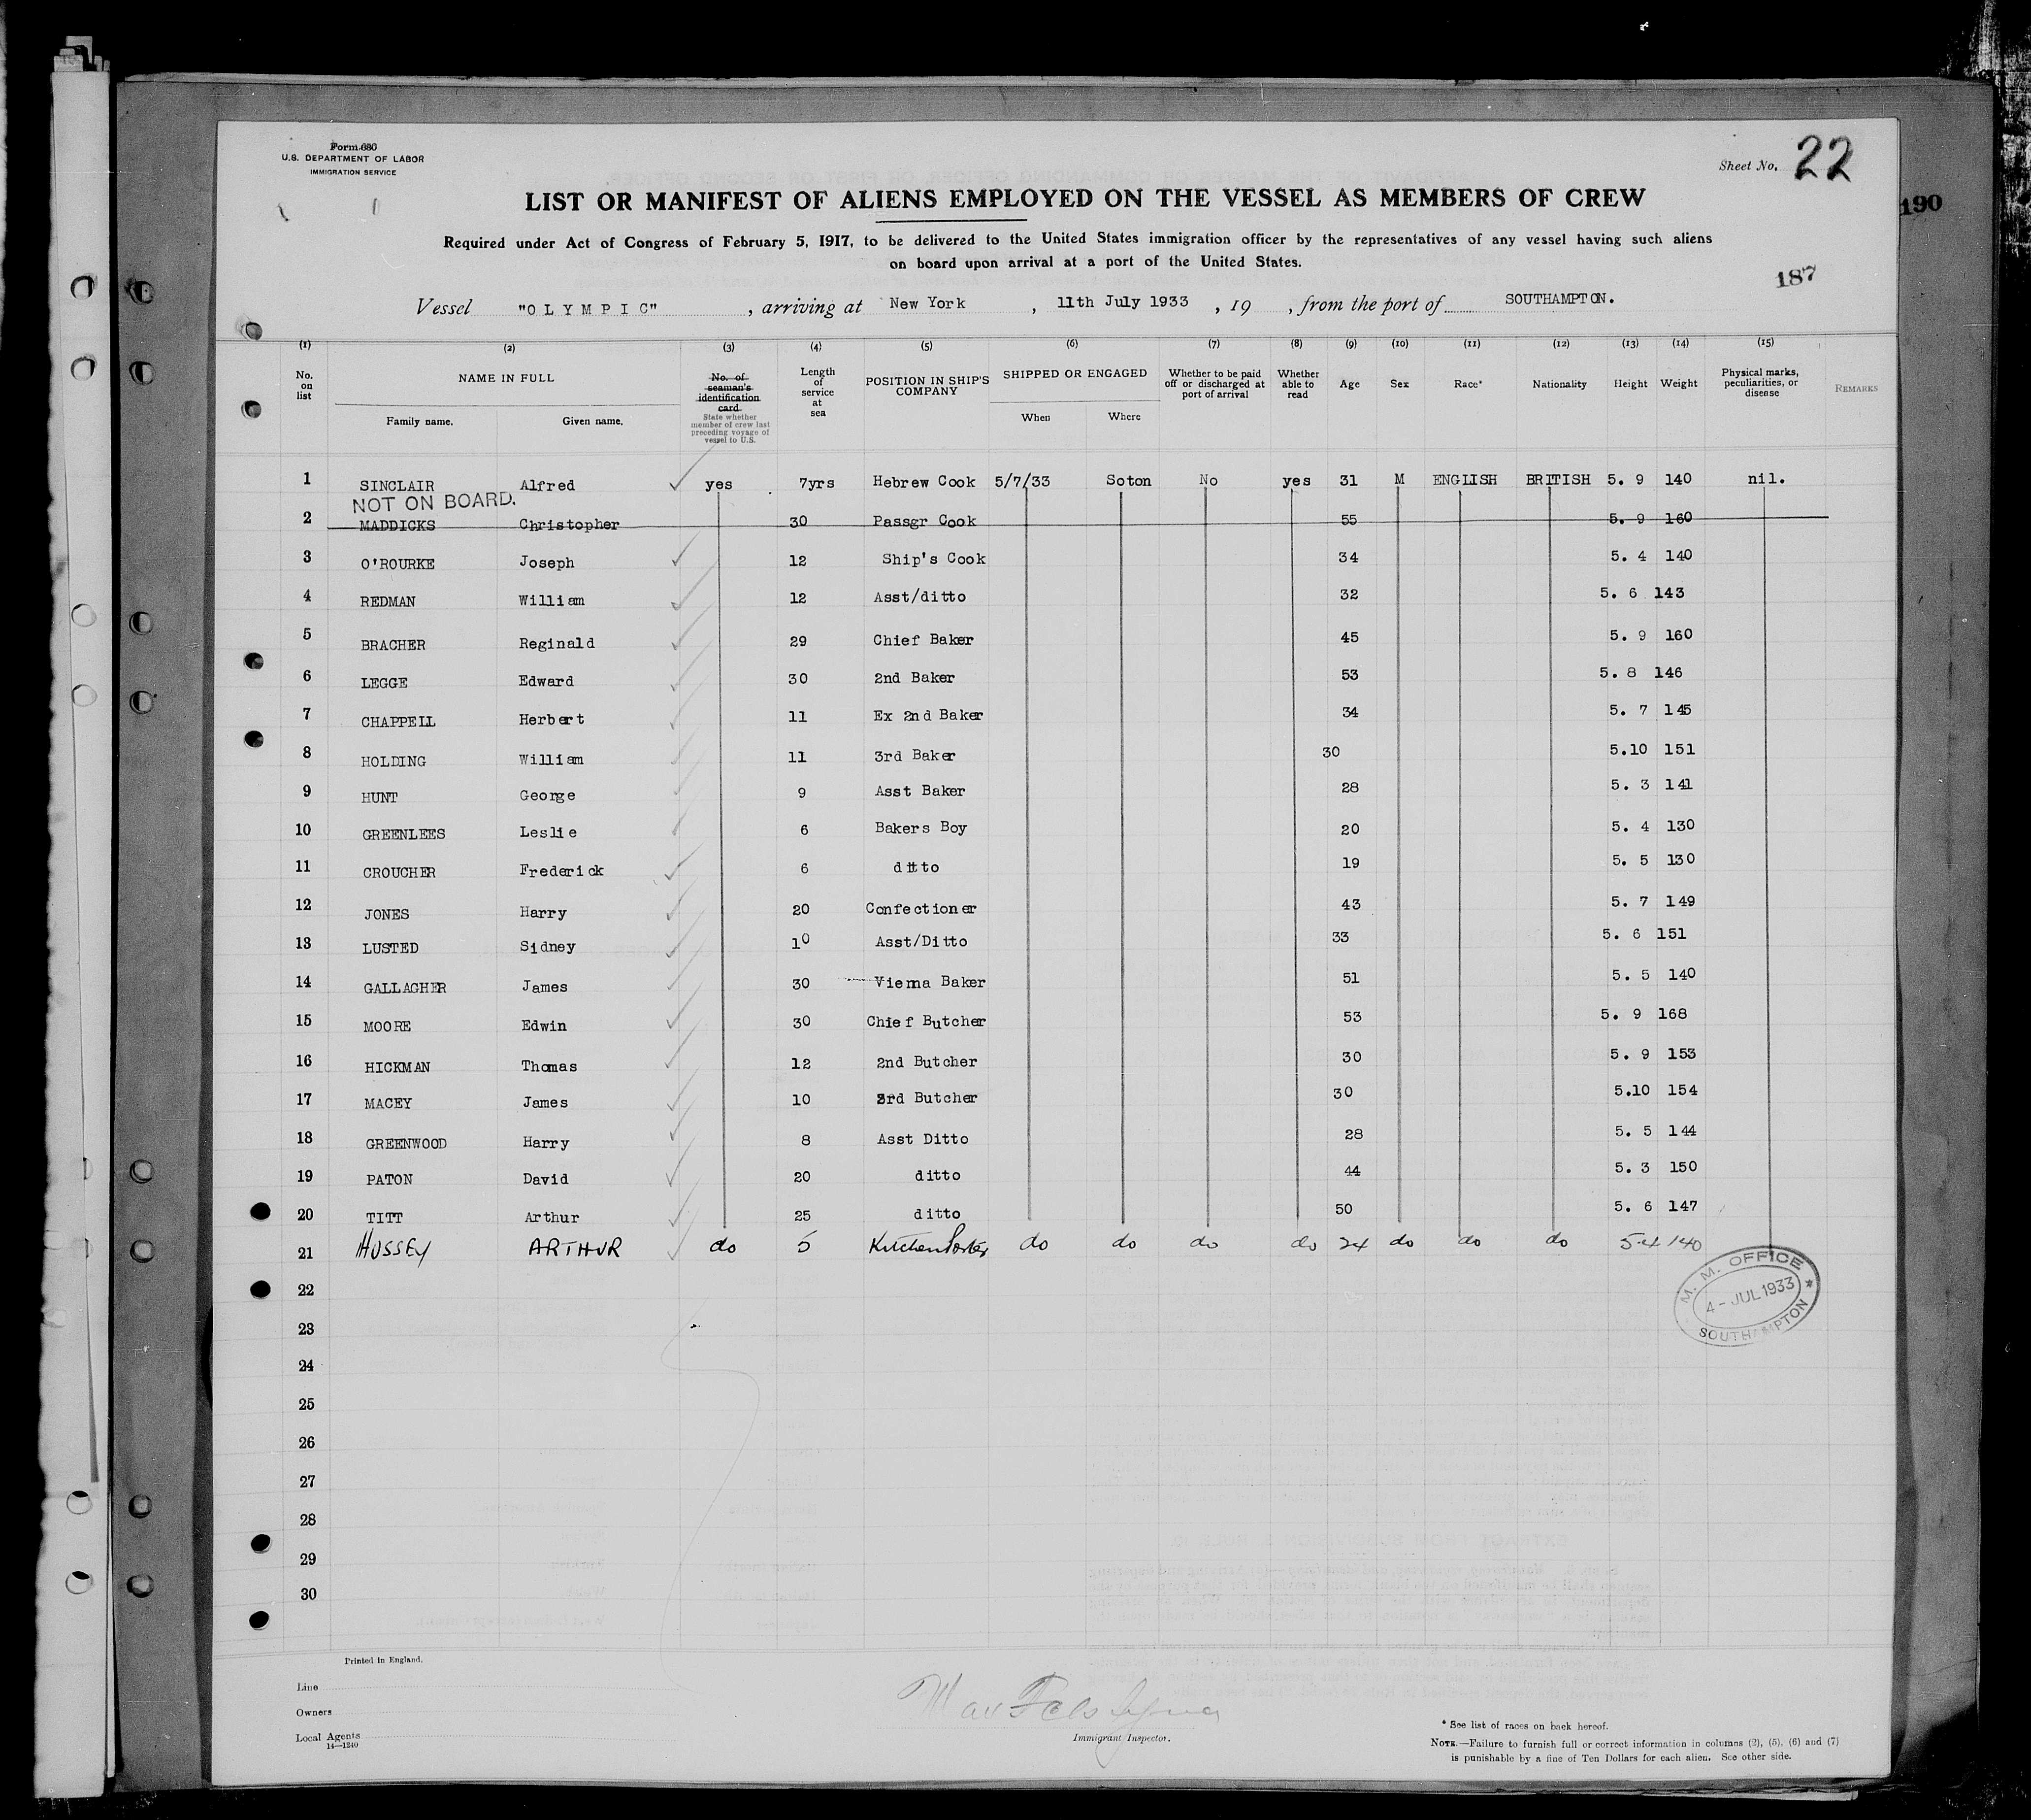 Form 680
U.S. DEPARTMENT OF LABOR
IMMIGRATION SERVICE
Sheet No. 22
190
LIST OR MANIFEST OF ALIENS EMPLOYED ON THE VESSEL AS MEMBERS OF CREW
Required under Act of Congress of February 5, 1917, to be delivered to the United States immigration officer by the representatives of any vessel having such aliens
on board upon arrival at a port of the United States.
187
Vessel "OLYMPIC" , arriving at New York , 11th July 1933 , 19 , from the port of SOUTHAMPTON.
(1) (2) (3) (4) (5) (6) (7) (8) (9) (10) (11) (12) (13) (14) (15)
No. on list NAME IN FULL Family name. Given name. No. of seaman's identification card State whether member of crew last preceding voyage of vessel to U.S. Length of service at sea POSITION IN SHIP'S COMPANY SHIPPED OR ENGAGED When Where Whether to be paid off or discharged at port of arrival Whether able to read Age Sex Race* Nationality Height Weight Physical marks, peculiarities, or disease REMARKS
1 SINCLAIR Alfred yes 7yrs Hebrew Cook 5/7/33 Soton No yes 31 M ENGLISH BRITISH 5. 9 140 nil.
NOT ON BOARD.
2 MADDICKS Christopher 30 Passgr Cook 55 5. 9 160
3 O'ROURKE Joseph 12 Ship's Cook 34 5. 4 140
4 REDMAN William 12 Asst/ditto 32 5. 6 143
5 BRACHER Reginald 29 Chief Baker 45 5. 9 160
6 LEGGE Edward 30 2nd Baker 53 5. 8 146
7 CHAPPELL Herbert 11 Ex 2nd Baker 34 5. 7 145
8 HOLDING William 11 3rd Baker 30 5.10 151
9 HUNT George 9 Asst Baker 28 5. 3 141
10 GREENLEES Leslie 6 Bakers Boy 20 5. 4 130
11 CROUCHER Frederick 6 ditto 19 5. 5 130
12 JONES Harry 20 Confectioner 43 5. 7 149
13 LUSTED Sidney 10 Asst/Ditto 33 5. 6 151
14 GALLAGHER James 30 Vienna Baker 51 5. 5 140
15 MOORE Edwin 30 Chief Butcher 53 5. 9 168
16 HICKMAN Thomas 12 2nd Butcher 30 5. 9 153
17 MACEY James 10 3rd Butcher 30 5.10 154
18 GREENWOOD Harry 8 Asst Ditto 28 5. 5 144
19 PATON David 20 ditto 44 5. 3 150
20 TITT Arthur 25 ditto 50 5. 6 147
21 HUSSEY ARTHUR do 5 Kitchen Porter do do do do 24 do do do 5.4 140
22
M. M. OFFICE
4 - JUL 1933
SOUTHAMPTON
23
24
25
26
27
28
29
30
Printed in England.
Line
Owners
Local Agents
14—1240
Immigrant Inspector.
* See list of races on back hereof.
NOTE.—Failure to furnish full or correct information in columns (2), (5), (6) and (7)
is punishable by a fine of Ten Dollars for each alien. See other side.